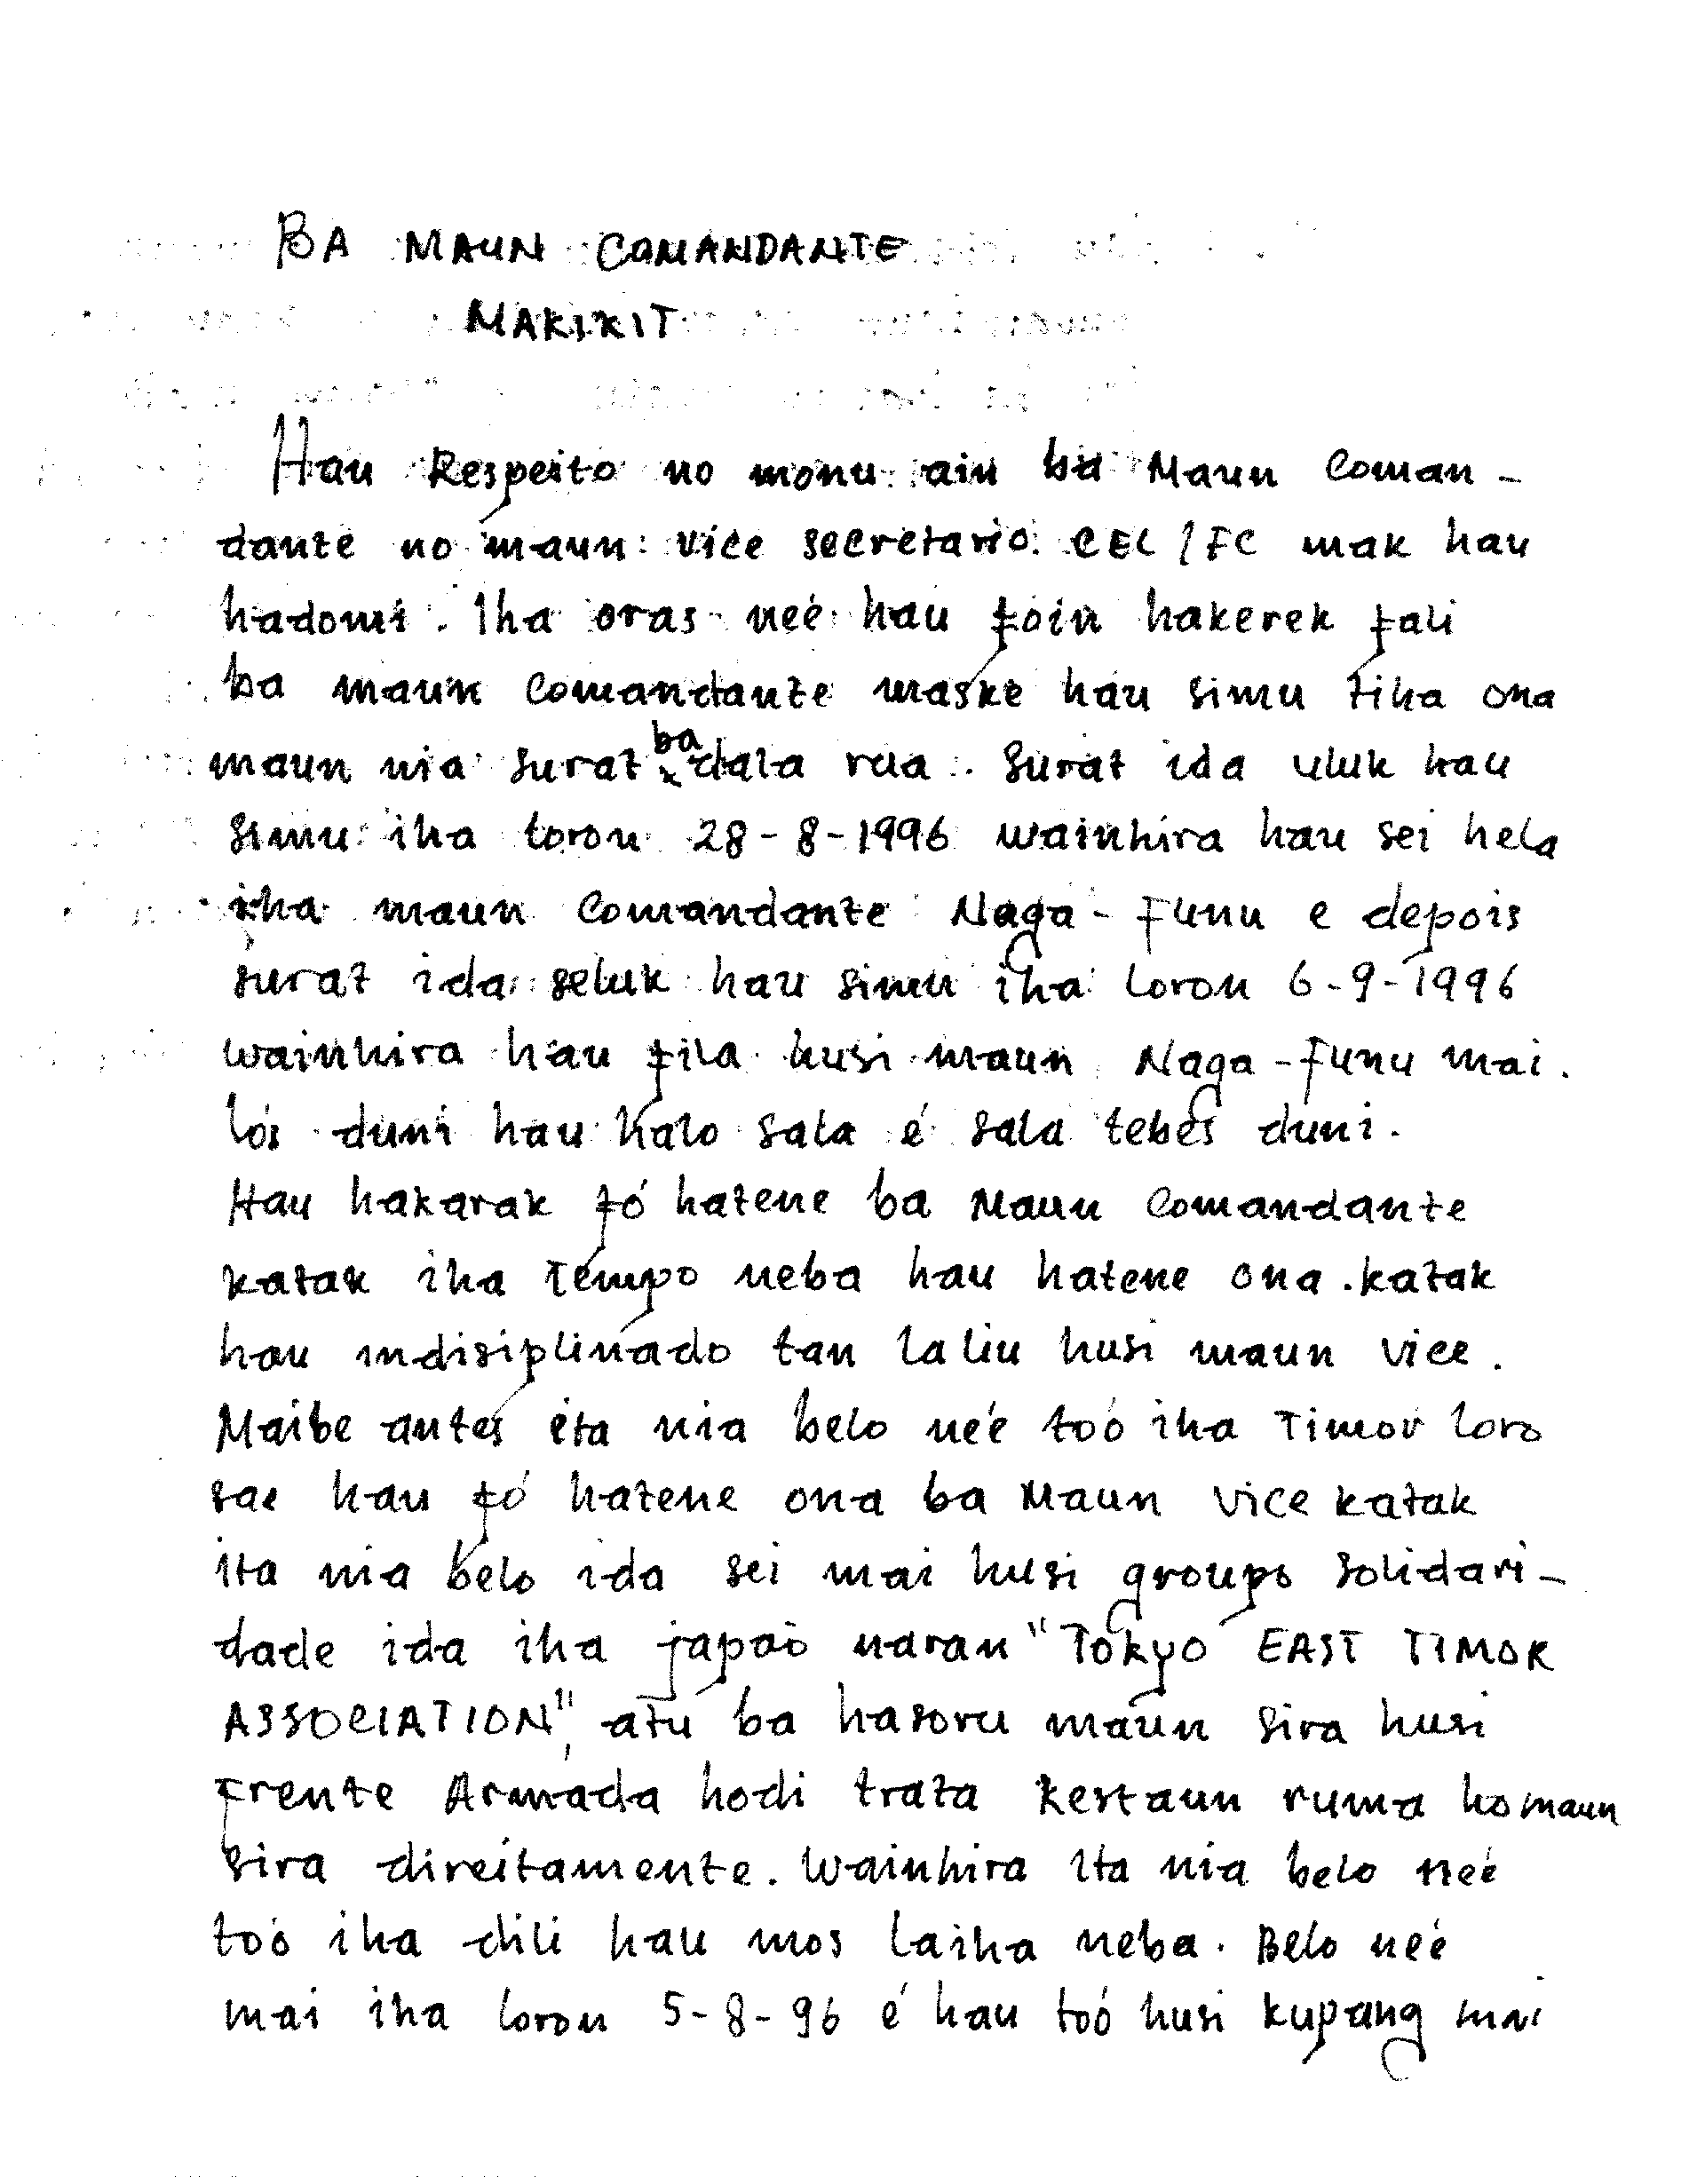 BA MAUN COMANDANTE
MAKIKIT
Hau Respeito no monu ain ba Maun Coman-
dante no maun vice secretario CEL/FC mak hau
hadomi. Iha oras neé hau foin hakerek fali
ba maun Comandante maske hau simu tiha ona
maun nia surat ba dala rua. Surat ida uluk hau
simu iha loron 28-8-1996 wainhira hau sei hela
iha maun Comandante Naga-Funu e depois
surat ida seluk hau simu iha loron 6-9-1996
wainhira hau fila husi maun Naga-Funu mai.
lós duni hau halo sala é sala tebes duni.
Hau hakarak fó hatene ba Maun Comandante
katak iha Tempo neba hau hatene ona. katak
hau indisiplinado tan la liu husi maun vice.
Maibe antes ita nia belo neé toó iha Timor loro
sae hau fó hatene ona ba Maun Vice katak
ita nia belo ida sei mai husi groupo solidari-
dade ida iha japaõ naran "TOKYO EAST TIMOR
ASSOCIATION", atu ba hasoru maun sira husi
Frente Armada hodi trata kestaun ruma ho maun
sira direitamente. Wainhira ita nia belo neé
toó iha dili hau mos laiha neba. Belo neé
mai iha loron 5-8-96 é hau toó husi kupang mai